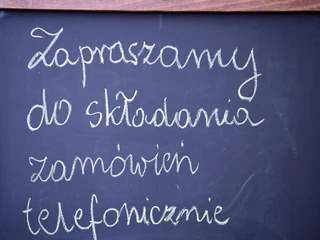 Zapraszamy
do składania
zamówień
telefonicznie